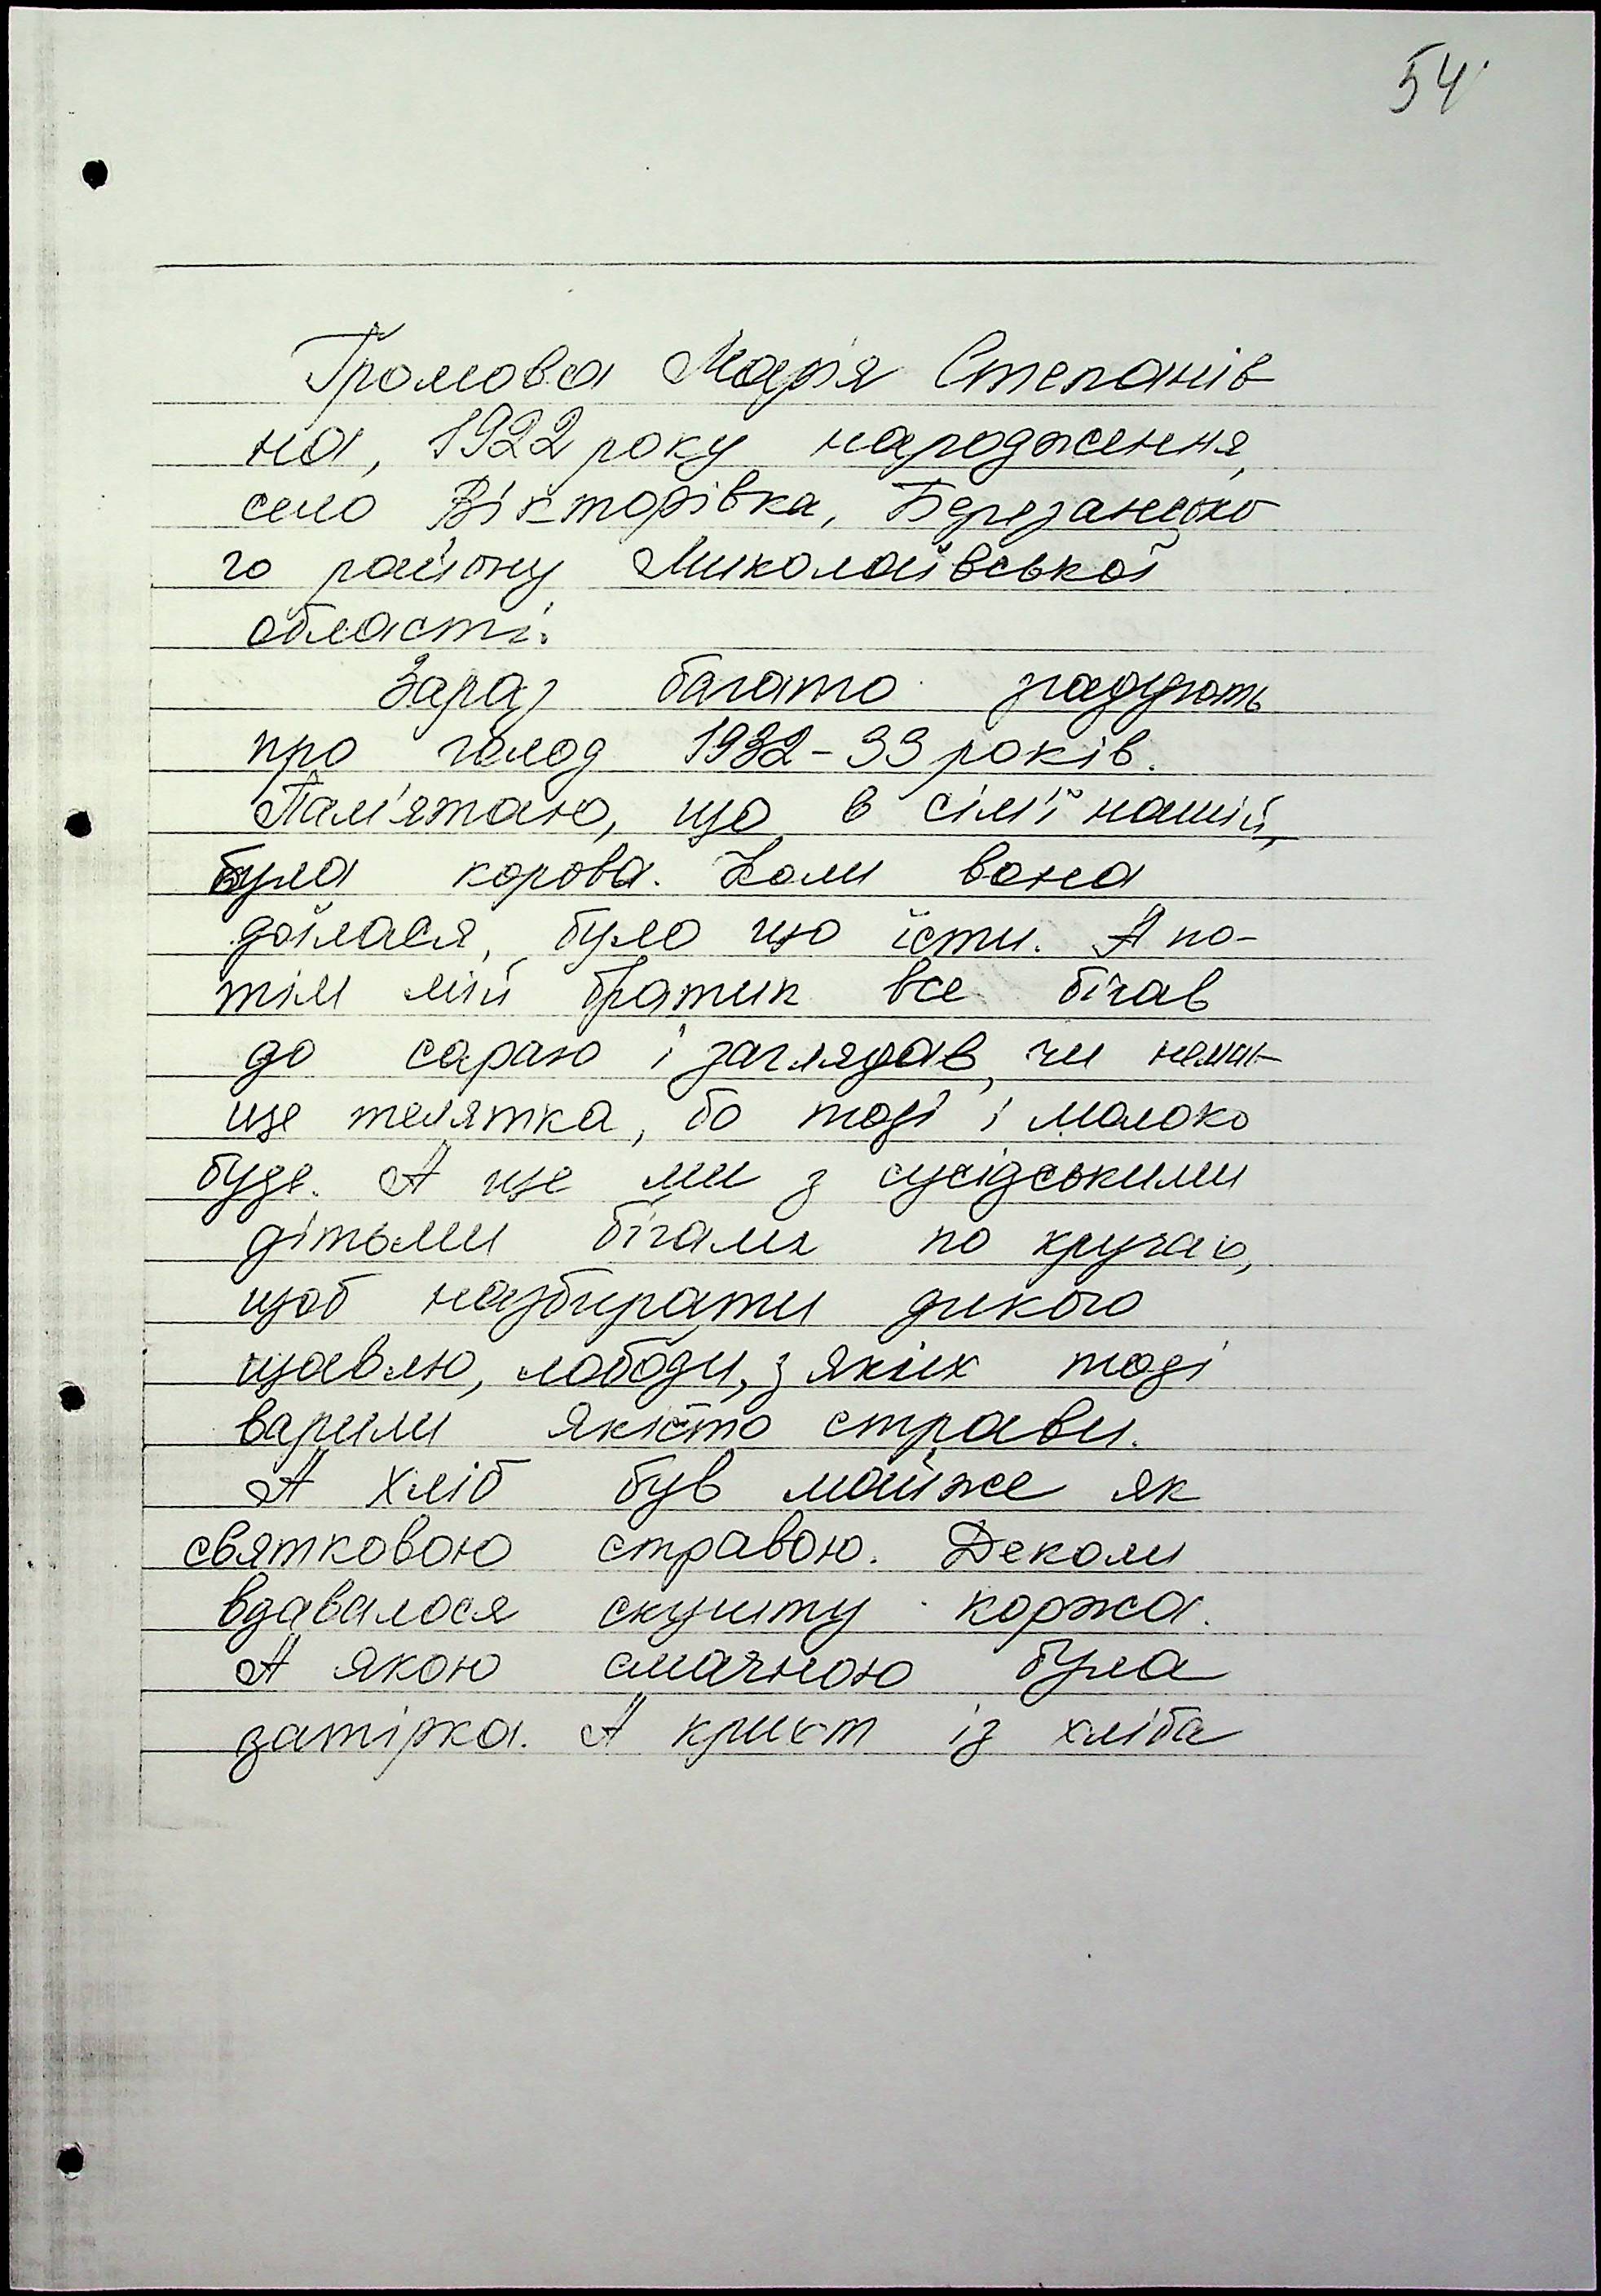 54
Громова Марія Степанів
на, 1922 року народження,
село Вікторівка, Березансько
го району Миколаївської
області.
Зараз багато згадують
про голод 1932-33 років.
Пам'ятаю, що в сім'ї нашій,
була корова. Коли вона
доїлася, було що їсти. А по-
тім мій братик все бігав
до сараю і заглядав, чи нема
ще телятка, бо тоді і молоко
буде. А ще ми з сусідськими
дітьми бігали по кручах,
щоб назбирати дикого
щавлю, лободи, з яких тоді
варили якісто страви.
А хліб був майже як
святковою стравою. Деколи
вдавалося скушту коржа.
А якою смачною була
затірка. А крихт із хліба